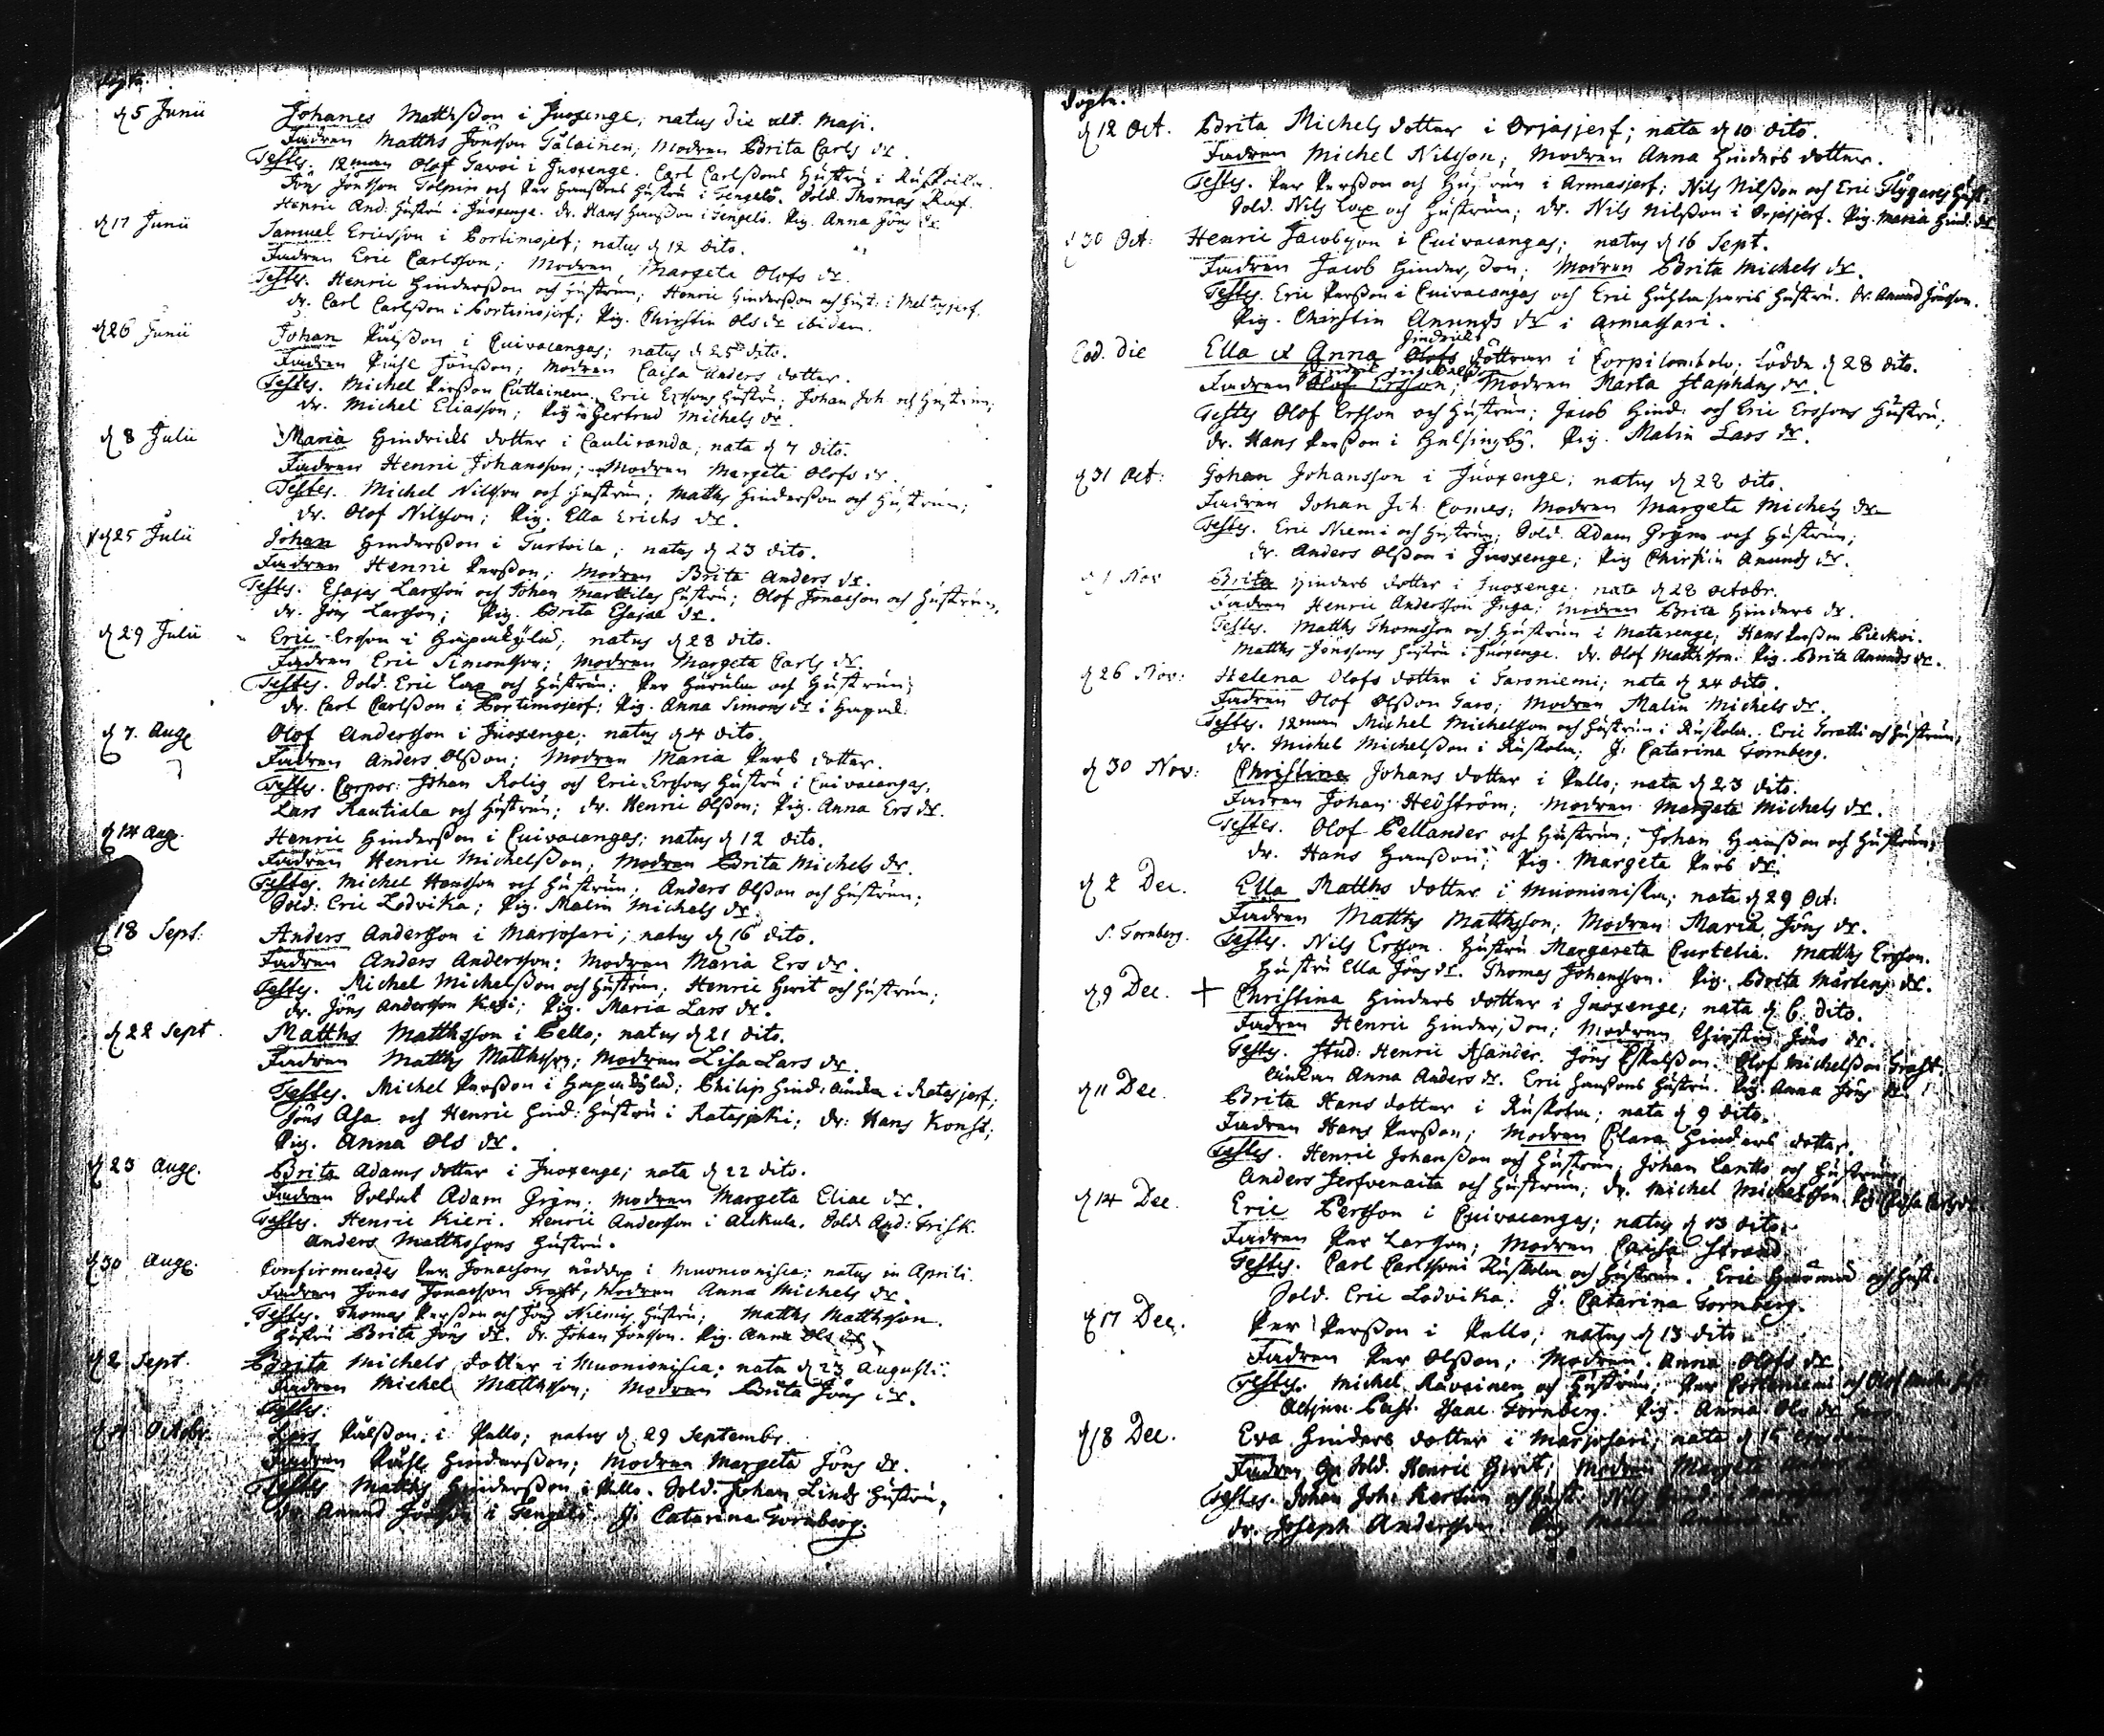 döpte.
d 5 Junii Johanes Matthsson i Juoxenge; natus die ult. Maji.
Fadren Matths Jönsson Tålainen; Modren Brita Carls dr.
Testes. 12man Olof Tavoi i Juoxenge. Carl Carlssons Hustru i Ruskoila.
Jöns Jönsson Tolpin och Per Hanssons Hustru i Tengelö. Sold. Thomas Raf.
Henric And: Hustru i Juoxenge. dr. Hans Hansson i Tengelö. Pig. Anna Jöns dr.
d 17 Junii Samuel Ericsson i Portimojerf; natus d 12 dito.
Fadren Eric Carlsson; Modren Margeta Olofs dr.
Testes. Henric Hindersson och Hustrun; Henric Hindersson och Hust: i Meltosjerf.
dr. Carl Carlsson i Portimojerf; Pig. Christin Ols dr ibidem.
d 26 Junii Johan Pålsson i Cuivacangas; natus d 25 dito.
Fadren Påhl Jönsson; Modren Caisa Anders dotter.
Testes. Michel Persson Cuttainen. Eric Erssons Hustru; Johan Joh. och Hustrun;
dr. Michel Eliasson; Pig. Gertrud Michels dr.
d 8 Julii Maria Hindricks dotter i Cauliranda; nata d 7 dito.
Fadren Henric Johansson; Modren Margeta Olofs dr.
Testes. Michel Nilsson och Hustrun; Matths Hindersson och Hustrun;
dr. Olof Nilsson; Pig. Ella Erichs dr.
d 25 Julii Johan Hindersson i Turtoila; natus d 23 dito.
Fadren Henric Persson; Modren Brita Anders dr.
Testes. Esajas Larsson och Johan Marttilas Hustru; Olof Jonasson och Hustrun.
dr. Jöns Larsson; Pig. Brita Esajae dr.
d 29 Julii Eric Ersson i Hapakylä; natus d 28 dito.
Fadren Eric Simonsson; Modren Margeta Carls dr.
Testes. Sold. Eric Lax och Hustrun; Per Harula och Hustrun;
dr. Carl Carlsson i Portimojerf; Pig. Anna Simons dr i Hapak.
d 7. Aug Olof Andersson i Juoxenge; natus d 4 dito.
Fadren Anders Olsson; Modren Maria Pers dotter.
Testes. Corpor: Johan Rolig och Eric Erssons Hustru i Cuivacangas,
Lars Rautiala och Hustrun; dr. Henric Olsson; Pig. Anna Ers dr.
d 14 Aug. Henric Hindersson i Cuivacangas; natus d 12 dito.
Fadren Henric Michelsson; Modren Brita Michels dr.
Testes. Michel Hansson och Hustrun; Anders Olsson och Hustrun;
Sold: Eric Lodvika; Pig. Malin Michels dr.
18 Sept: Anders Andersson i Marjosari; natus d 16 dito.
Fadren Anders Andersson; Modren Maria Ers dr.
Testes. Michel Michelsson och Hustrun; Henric Hvit och Hustrun;
dr. Jöns Andersson Kexi; Pig. Maria Lars dr.
d 22 Sept. Matths Matthsson i Pello; natus d 21 dito.
Fadren Matths Matthsson; Modren Lisa Lars dr.
Testes. Michel Persson i Hapakylä; Philip Hind: i Ratasjerf;
Jöns Asa och Henric Hind: Hustru i Ratasjoki; dr: Hans Konst;
Pig. Anna Ols dr.
d 23 Aug. Brita Adams dotter i Juoxenge; nata d 22 dito.
Fadren Soldat Adam Grym; Modren Margeta Eliae dr.
Testes. Henric Kieri. Henric Andersson i Alckula. Sold. And: Frisk.
Anders Matthssons Hustru.
d 30 Aug. Confirmerades Per Jonaesons nöddop i Muonionisca; natus in Aprili.
Fadren Jonas Jonasson Traft, Modren Anna Michels dr.
Testes. Thomas Persson och Jöns Niemis Hustru; Matths Matthsson.
Hustru Brita Jöns dr. dr. Johan Jönsson. Pig. Anna Ols dr.
d 2 Sept. Brita Michels dotter i Muonionisca; nata d 23 Augusti.
Fadren Michel Matthsson; Modren Brita Jöns dr.
Testes.
Octobr. Lars Pålsson i Pello; natus d. 29 Septembr.
Fadren Påhl Hindersson; Modren Margeta Jöns dr.
Testes Matths Hindersson i Pello. Sold. Johan Linds Hustru,
dr. Anund Jönsson i Tengelö. J. Catarina Tornberg.
döpte.
d 12 Oct. Brita Michels dotter i Orjasjerf; nata d 10 dito.
Fadren Michel Nilsson; Modren Anna Hinders dotter.
Testes. Per Persson och Hustrun i Armasjerf; Nils Nilsson och Eric Flygares Hust.
Sold. Nils Lax och Hustrun; dr. Nils Nilsson i Orjasjerf. Pig. Maria Hind: dr.
d 30 Oct: Henric Jacobsson i Cuivacangas; natus d 16 Sept.
Fadren Jacob Hindersson; Modren Brita Michels dr.
Testes. Eric Persson i Cuivacangas och Eric Hustru. dr. Anund Jönsson.
Pig. Christin Anunds dr i Armassari.
Hindricks
Eod. die Ella et Anna Olofs döttrar i Corpilombolo; födde d 28 dito.
Fadren Olof Ersson; Modren Marta Staphans dr.
Testes Olof Ersson och Hustrun; Jacob Hind: och Eric Erssons Hustru;
dr. Hans Persson i Helsingby. Pig. Malin Lars dr.
d 31 Oct: Johan Johansson i Juoxenge; natus d 28 dito.
Fadren Johan Joh. Comes; Modren Margeta Michels dr.
Testes. Eric Niemi och Hustrun; Sold. Adam Grym och Hustrun;
dr. Anders Olsson i Juoxenge; Pig Christin Anunds dr.
d 1 Nov Brita Hinders dotter i Juoxenge; nata d 28 octobr.
Fadren Henric Andersson Juga; Modren Brita Hinders dr.
Testes. Matths Thomsson och Hustrun i Matarenge; Hans Persson Pieckoi.
Matths Jönssons Hustru i Juoxenge. dr. Olof Matthsson. Pig. Brita Anunds dr.
d 26 Nov: Helena Olofs dotter i Taroniemi; nata d 24 dito.
Fadren Olof Olsson Taro; Modren Malin Michels dr.
Testes. 12man Michel Michelsson och Hustrun i Ruskola. Eric Toratti och Hustrun;
dr. Michel Michelsson i Ruskola; J. Catarina Tornberg.
d 30 Nov: Christina Johans dotter i Pello; nata d 23 dito.
Fadren Johan Hedström; Modren Margeta Michels dr.
Testes. Olof Pellander och Hustrun; Johan Hansson och Hustrun;
dr. Hans Hansson; Pig. Margeta Pers dr.
d 2 Dec. Ella Matths dotter i Muonioniska; nata d 29 Oct:
Fadren Matths Matthsson; Modren Maria Jöns dr.
S. Tornberg. Testes. Nils Ersson. Hustru Margareta Curtelia. Matths Ersson.
Hustru Ella Jöns dr. Thomas Johansson. Pig. Brita Mårtens dr.
d 9 Dec. + Christina Hinders dotter i Juoxenge; nata d 6. dito.
Fadren Henric Hindersson; Modren Christin Jöns dr.
Testes. Stud: Henric Asander. Jöns Eskelsson. Olof Michelsson Traft.
Anna Anders dr. Eric Hanssons Hustru. Pig. Anna Jöns dr.
d 11 Dec. Brita Hans dotter i Ruskola; nata d 9 dito.
Fadren Hans Persson; Modren Clara Hinders dotter.
Testes. Henric Johansson och Hustrun; Johan Lantto och Hustrun;
Anders Jerfvenaita och Hustrun; dr. Michel Michelsson. Pig. Caisa Carls dr.
d 14 Dec. Eric Persson i Cuivacangas; natus d 13 dito.
Fadren Per Larsson; Modren Carisa Strand
Testes. Carl Carlsson Ruskola och Hustrun. Eric och Hust.
Sold. Eric Lodvika. J. Catarina Tornberg.
d 17 Dec. Per Persson i Pello; natus d 13 dito.
Fadren Per Olsson; Modren Anna Olofs dr.
Testes. Michel Råvainen och Hustrun; Per och Olof
Adjunc. Past. Isaac Tornberg. Pig. Anna Ols dr
d 18 Dec. Eva Hinders dotter i Marjosari; nata d 15
Fadren Sold. Henric Hvit; Modren Margeta Anders
Testes. Johan Joh: och Hust: Nils Hind:
dr. Joseph Andersson. Pig Maria Anders dr.